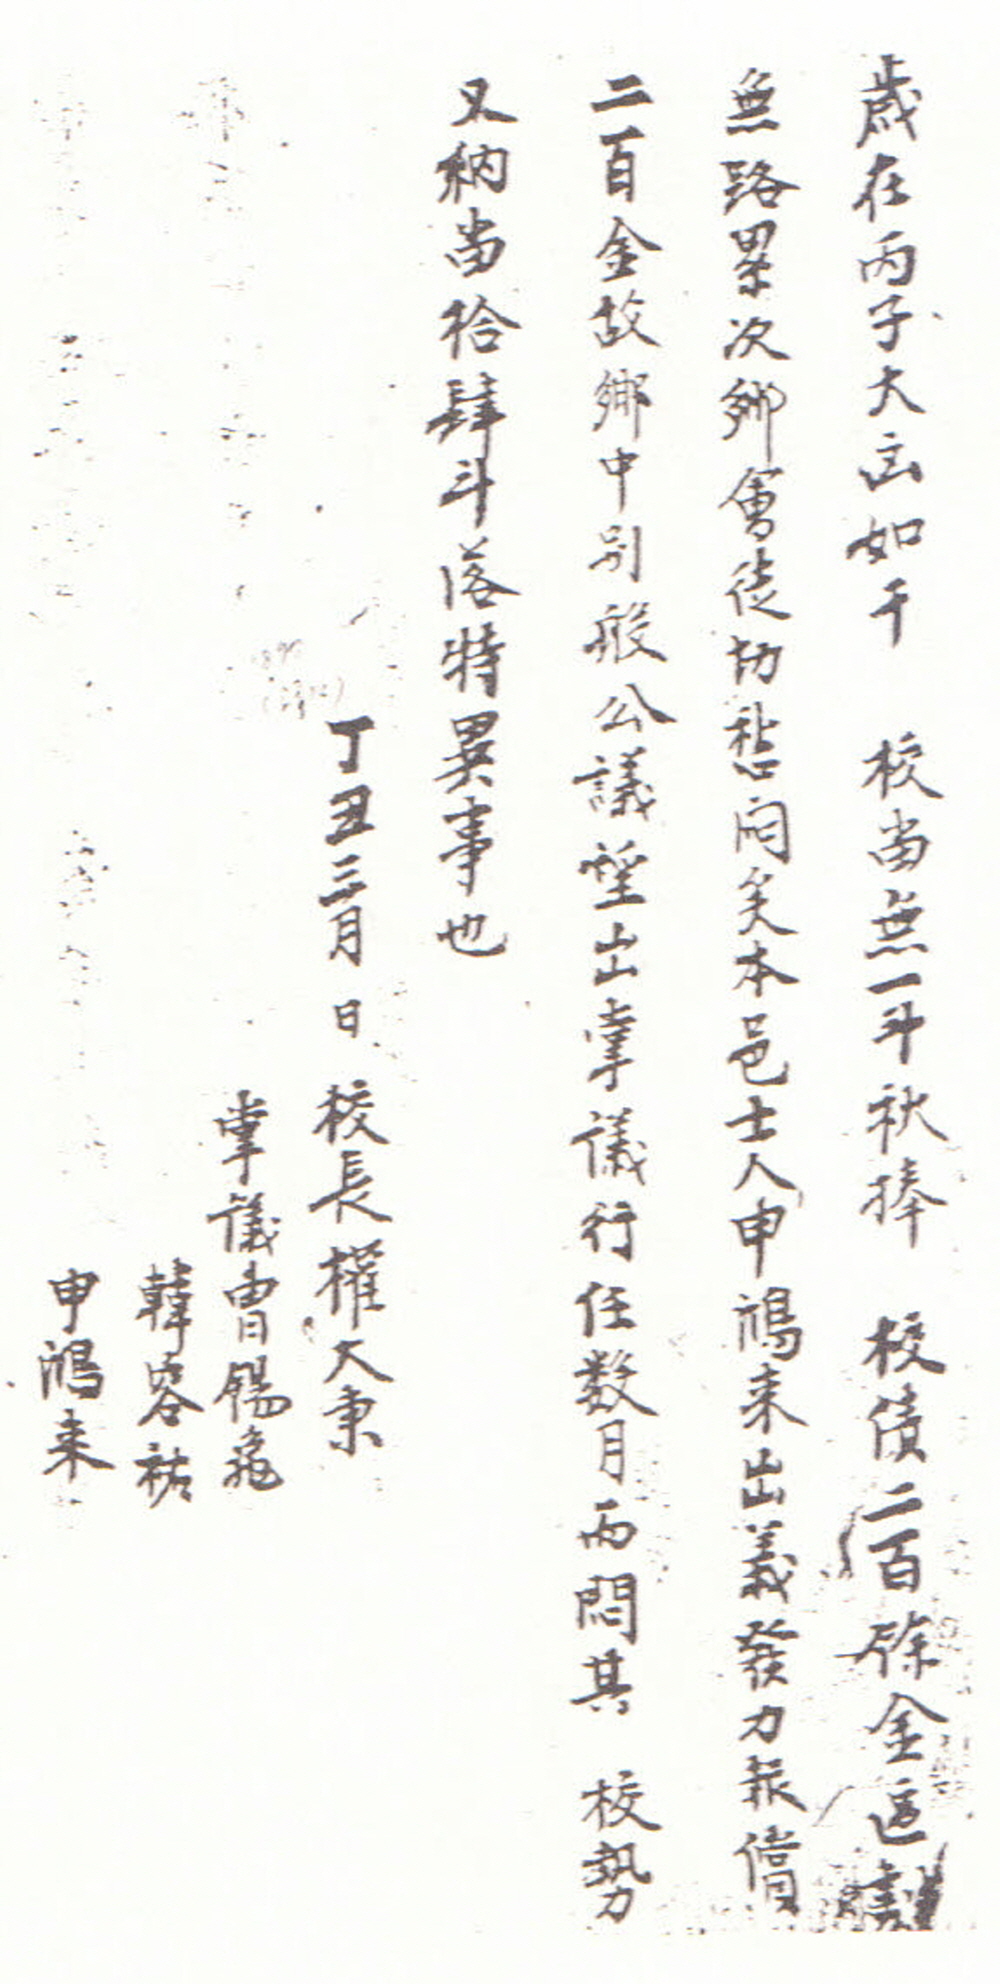 歲在丙子大凶如干 校畓無一斗秋捧 校債二百餘金區劃
無路累次鄕會徒切愁悶矣本邑士人申鴻來出義發力報償
二百金故鄕中別般公議望出掌儀行任数月而悶其 校勢
又納畓拾肆斗落特異事也
丁丑三月 日 校長權大秉
掌儀曺錫龜
韓容祐
申鴻来